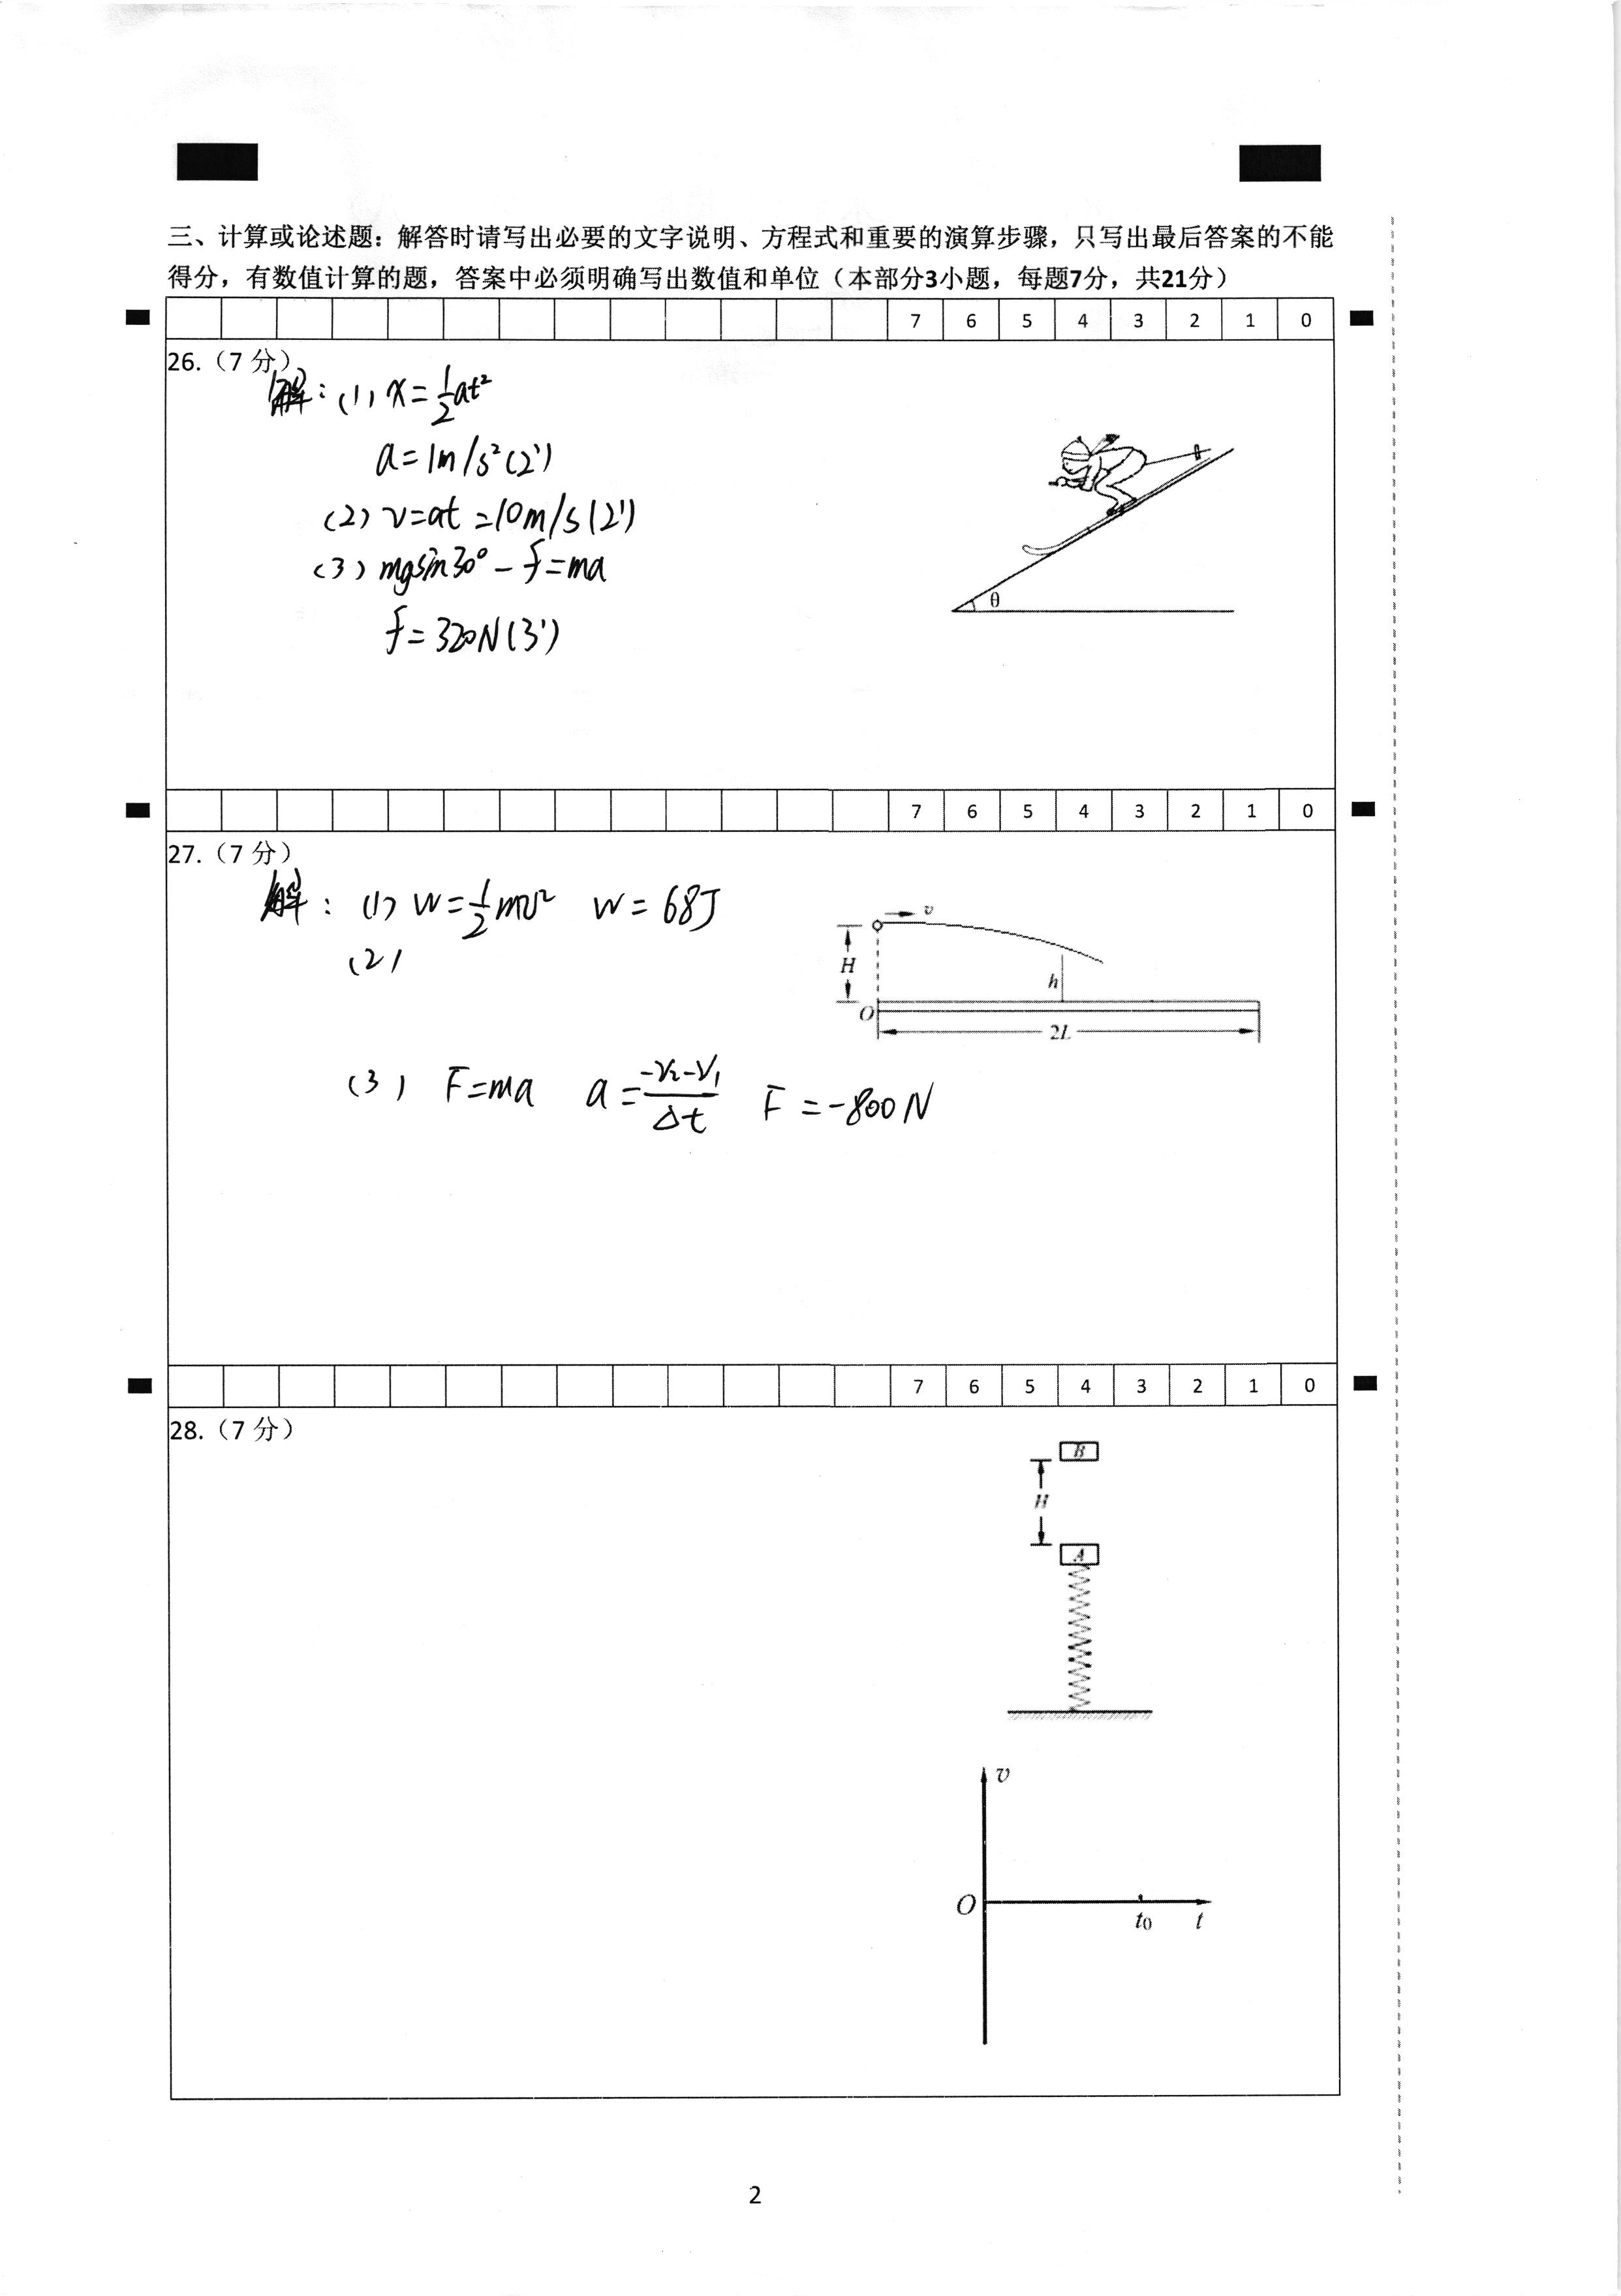 三、计算或论述题：解答时请写出必要的文字说明、方程式和重要的演算步骤，只写出最后答案的不能
得分，有数值计算的题，答案中必须明确写出数值和单位（本部分3小题，每题7分，共21分）
7 6 5 4 3 2 1 0
26.（7 分）
解：(1) x=½at²
a=1m/s²(2')
(2) v=at=10m/s(2')
(3) mgsin30°－f=ma
f=320N(3')
θ
7 6 5 4 3 2 1 0
27.（7 分）
解：(1) W=½mv² W=68J
(2)
v
H
h
O
2L
(3) F=ma a=(-v₂-v₁)/Δt F=-800N
7 6 5 4 3 2 1 0
28.（7 分）
B
H
A
v
O
t₀ t
2